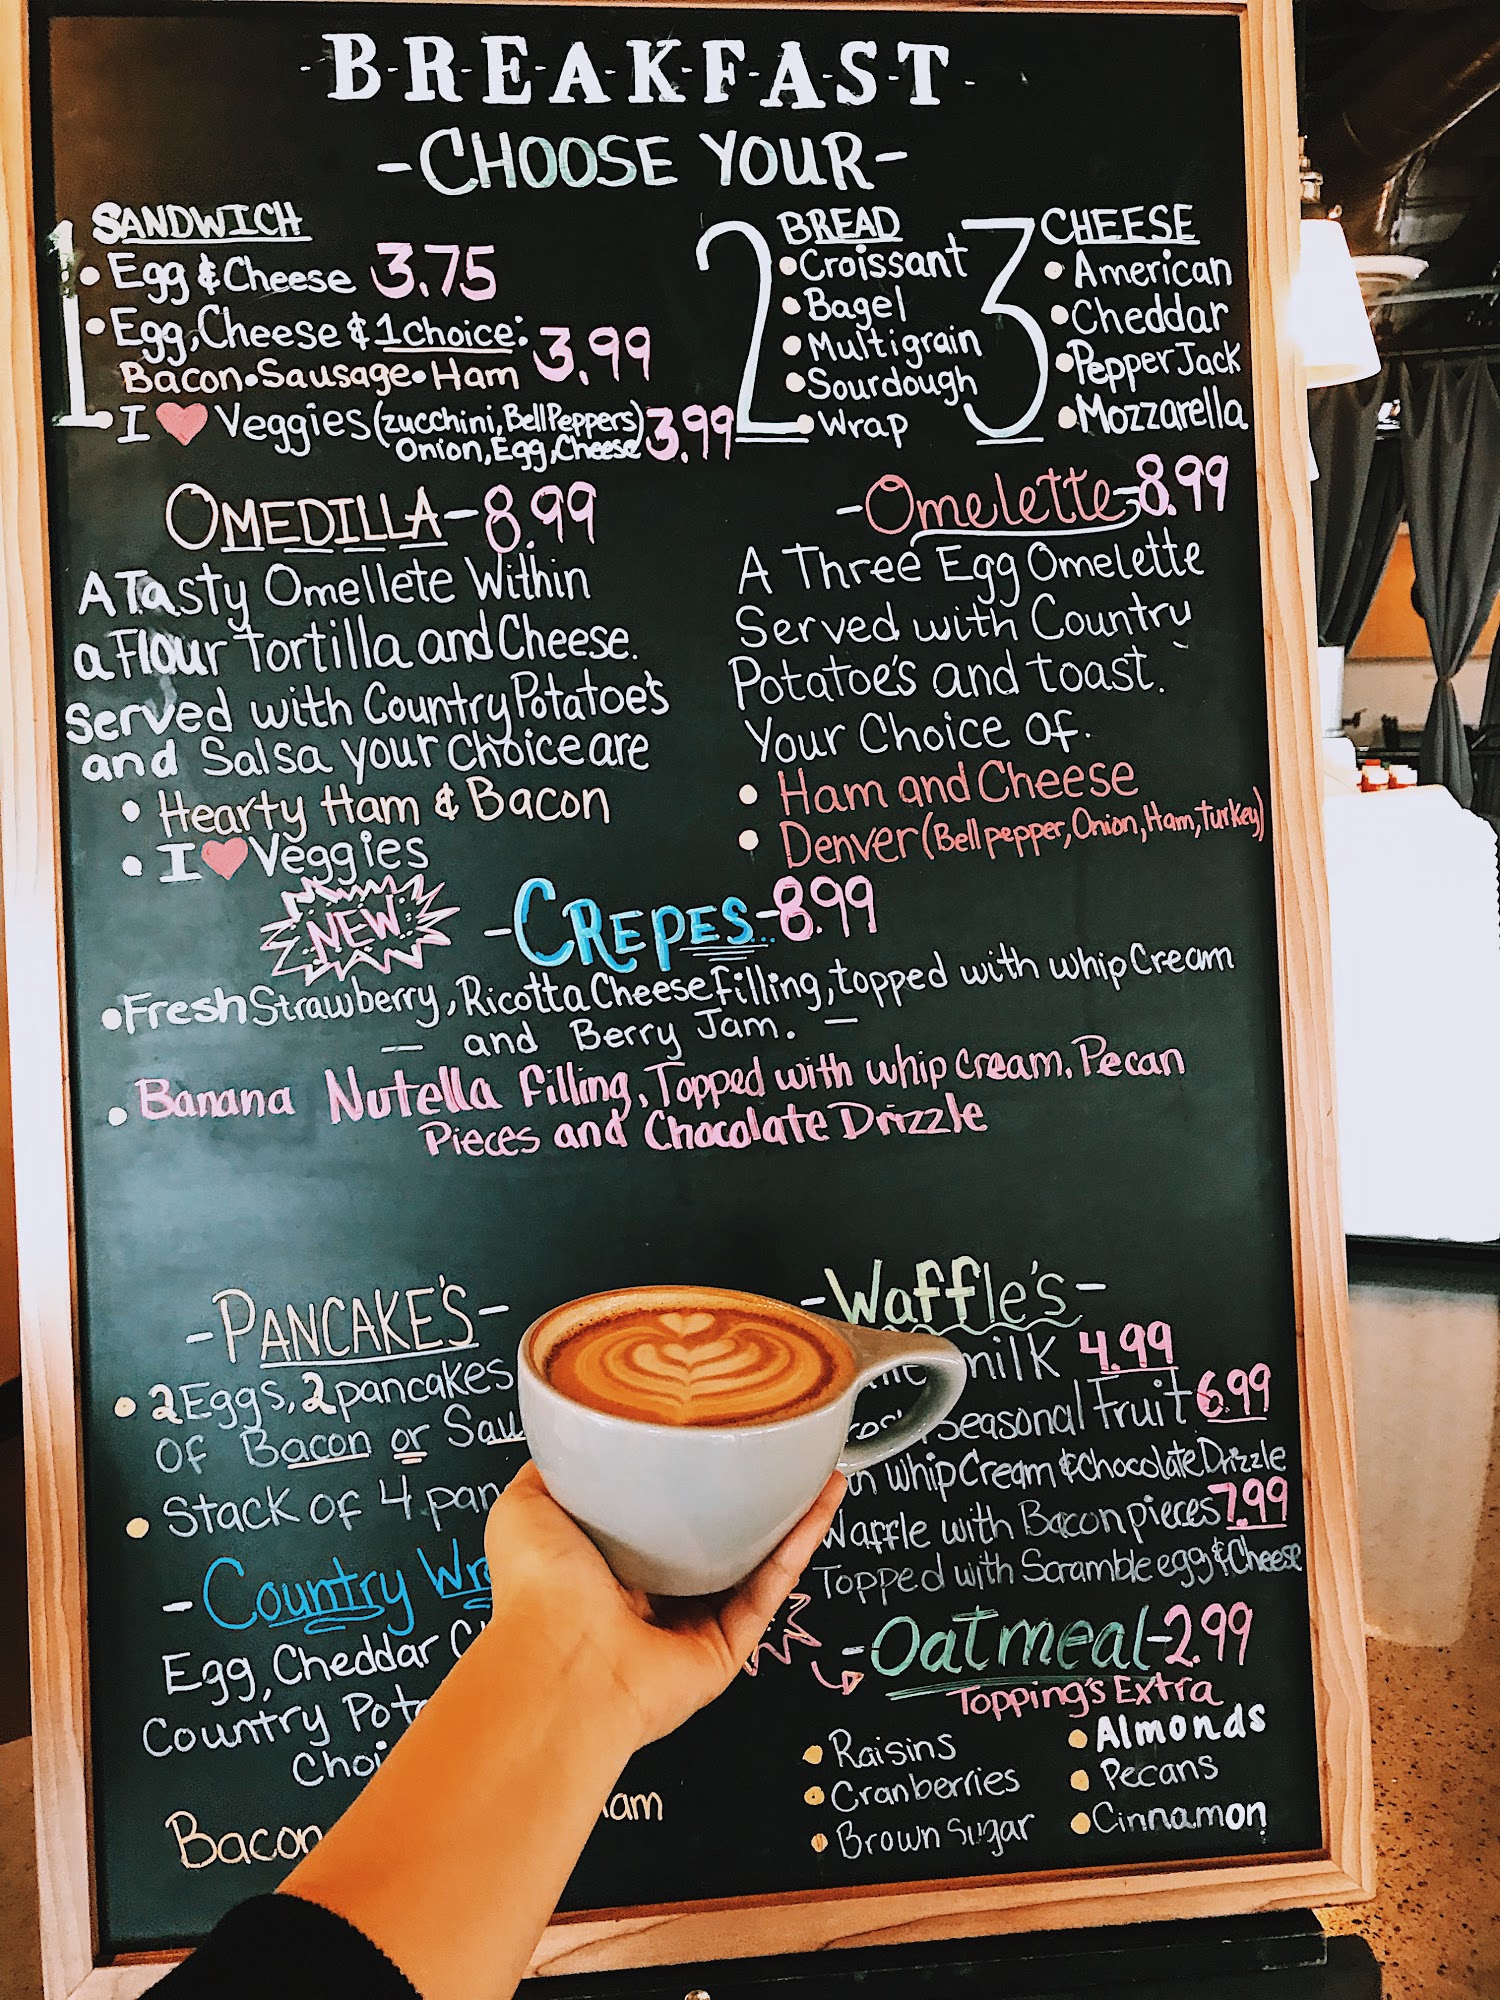 -B-R-E-A-K-F-A-S-T-
-CHOOSE YOUR-
1 SANDWICH
• Egg & Cheese 3.75
• Egg, Cheese & 1 choice: 3.99
Bacon • Sausage • Ham
• I ♥ Veggies (zucchini, Bell Peppers) 3.99
Onion, Egg, Cheese
2 BREAD
• Croissant
• Bagel
• Multigrain
• Sourdough
• Wrap
3 CHEESE
• American
• Cheddar
• Pepper Jack
• Mozzarella
OMEDILLA - 8.99
A Tasty Omellete Within
a Flour Tortilla and Cheese.
Served with Country Potatoe's
and Salsa your choice are
• Hearty Ham & Bacon
• I ♥ Veggies
-Omelette- 8.99
A Three Egg Omelette
Served with Country
Potatoe's and toast.
Your Choice of.
• Ham and Cheese
• Denver (Bell pepper, Onion, Ham, Turkey)
NEW
-CREPES- 8.99
• Fresh Strawberry, Ricotta Cheese filling, topped with whip Cream
— and Berry Jam. —
• Banana Nutella filling, Topped with whip cream, Pecan
Pieces and Chocolate Drizzle
-PANCAKE'S-
• 2 Eggs, 2 pancakes
Of Bacon or
• Stack of 4
-Country
Egg, Cheddar
Country
Bacon
-Waffle's-
4.99
Seasonal Fruit 6.99
whip Cream & Chocolate Drizzle
Waffle with Bacon pieces 7.99
Topped with Scramble egg & Cheese
-Oatmeal- 2.99
Topping's Extra
• Raisins
• Cranberries
• Brown Sugar
• Almonds
• Pecans
• Cinnamon